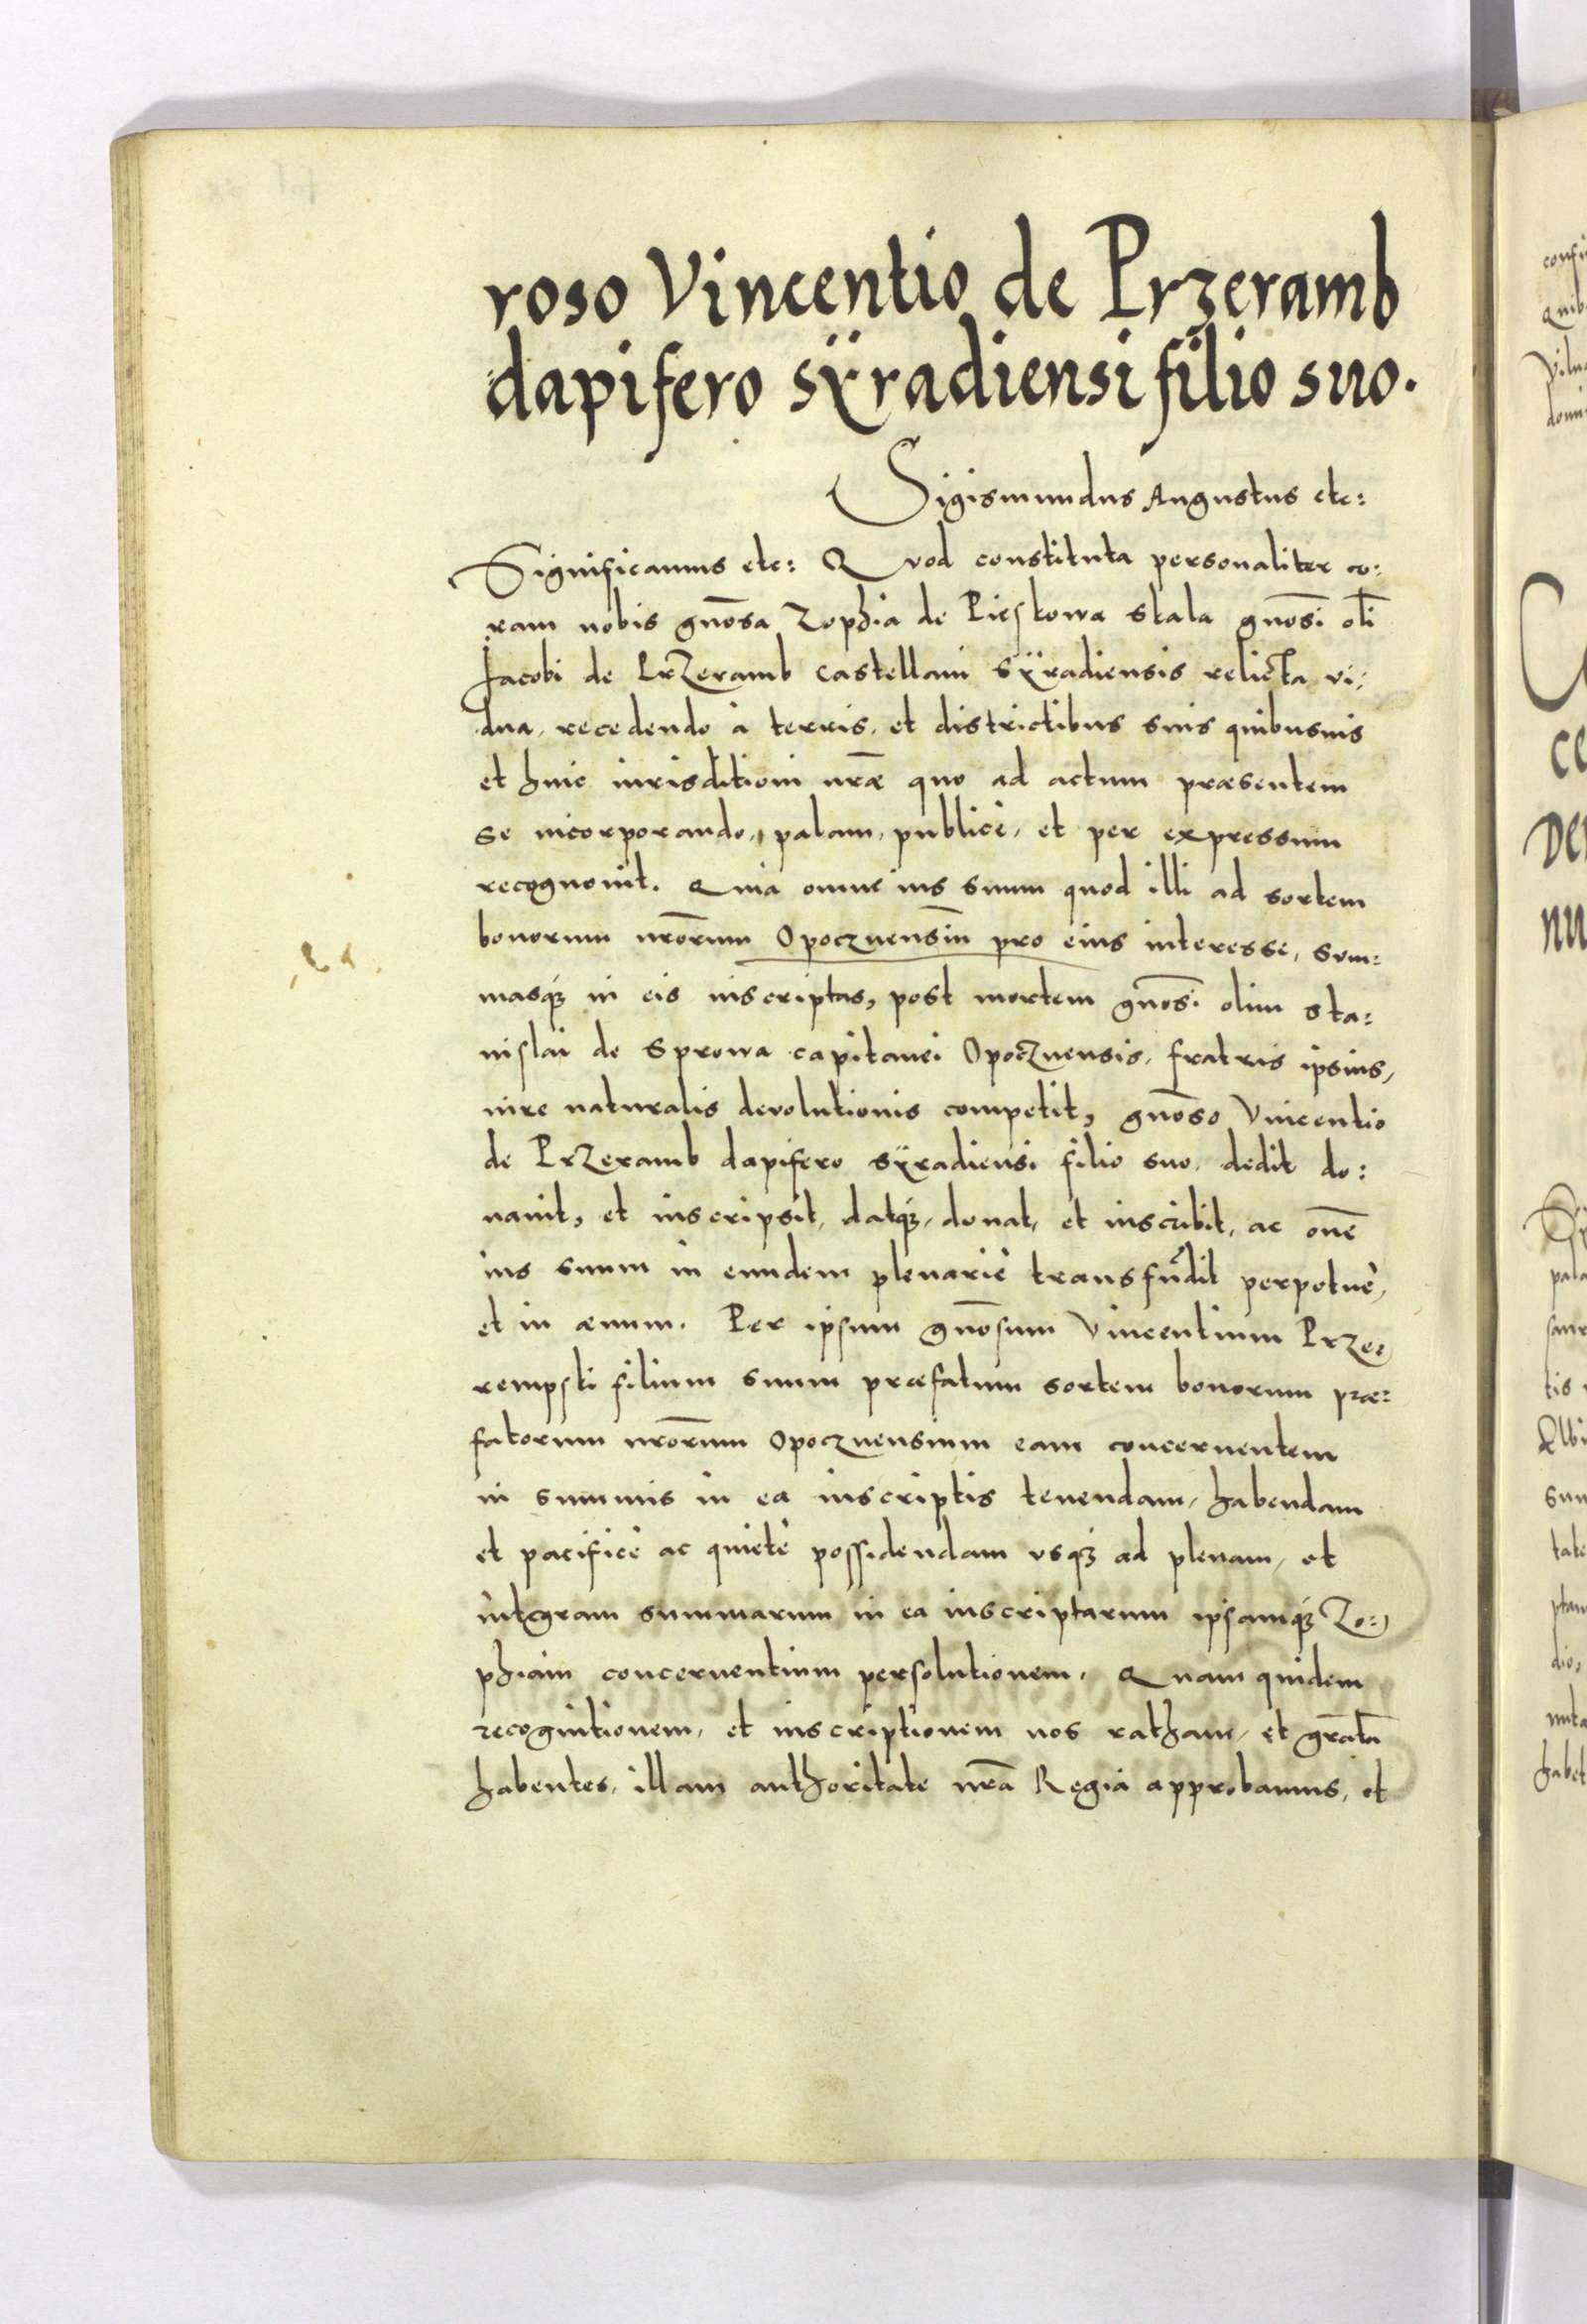 roso Vincentio de Przeramb
dapifero sÿradiensi filio suo.
Sigismundus Augustus etc:
Significamus etc: Quod constituta personaliter co:
ram nobis gnōsa Zophia de Pieskowa skala gnōsi olī
Jacobi de Przeramb castellani sÿradiensis relicta vi:
dua, recedendo à terris, et districtibus suis quibusuis
et huic iurisditioni nr̄æ quo ad actum præsentem
se incorporando, palam, publicè, et per expressum
recognouit. Quia omne ius suum quod illi ad sortem
bonorum nrōrum Opocznensiū pro eius interesse, sum:
masqȝ in eis inscriptas, post mortem gnōsi olim sta:
nislai de Sprowa capitanei Opocznensis, fratris ipsius,
iure naturalis devolutionis competit, gnōso Vincentio
de Przeramb dapifero sÿradiensi filio suo, dedit do:
nauit, et inscripsit, datqȝ, donat, et inscribit, ac om̄e
ius suum in eundem plenariè transfūdit perpetuè,
et in æuum. Per ipsum gnōsum Vincentium Prze:
rempski filium suum præfatum sortem bonorum præ:
fatorum nrōrum Opocznensium eam concernentem
in summis in ea inscriptis tenendam, habendam
et pacificè ac quietè possidendam vsqȝ ad plenam, et
integram summarum in ea inscriptarum ipsamqȝ Zo:
phiam concernentium persolutionem. Quam quidem
recognitionem, et inscriptionem nos ratham, et grātā
habentes, illam authoritate nr̄a Regia approbamus, et